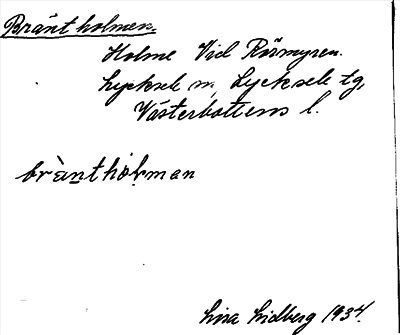 Bränt holmen.
Holme Vid Rörmyren.
Lycksele sn, Lycksele tg,
Västerbottens l.
bràntholman
Lisa Lidberg 1934.